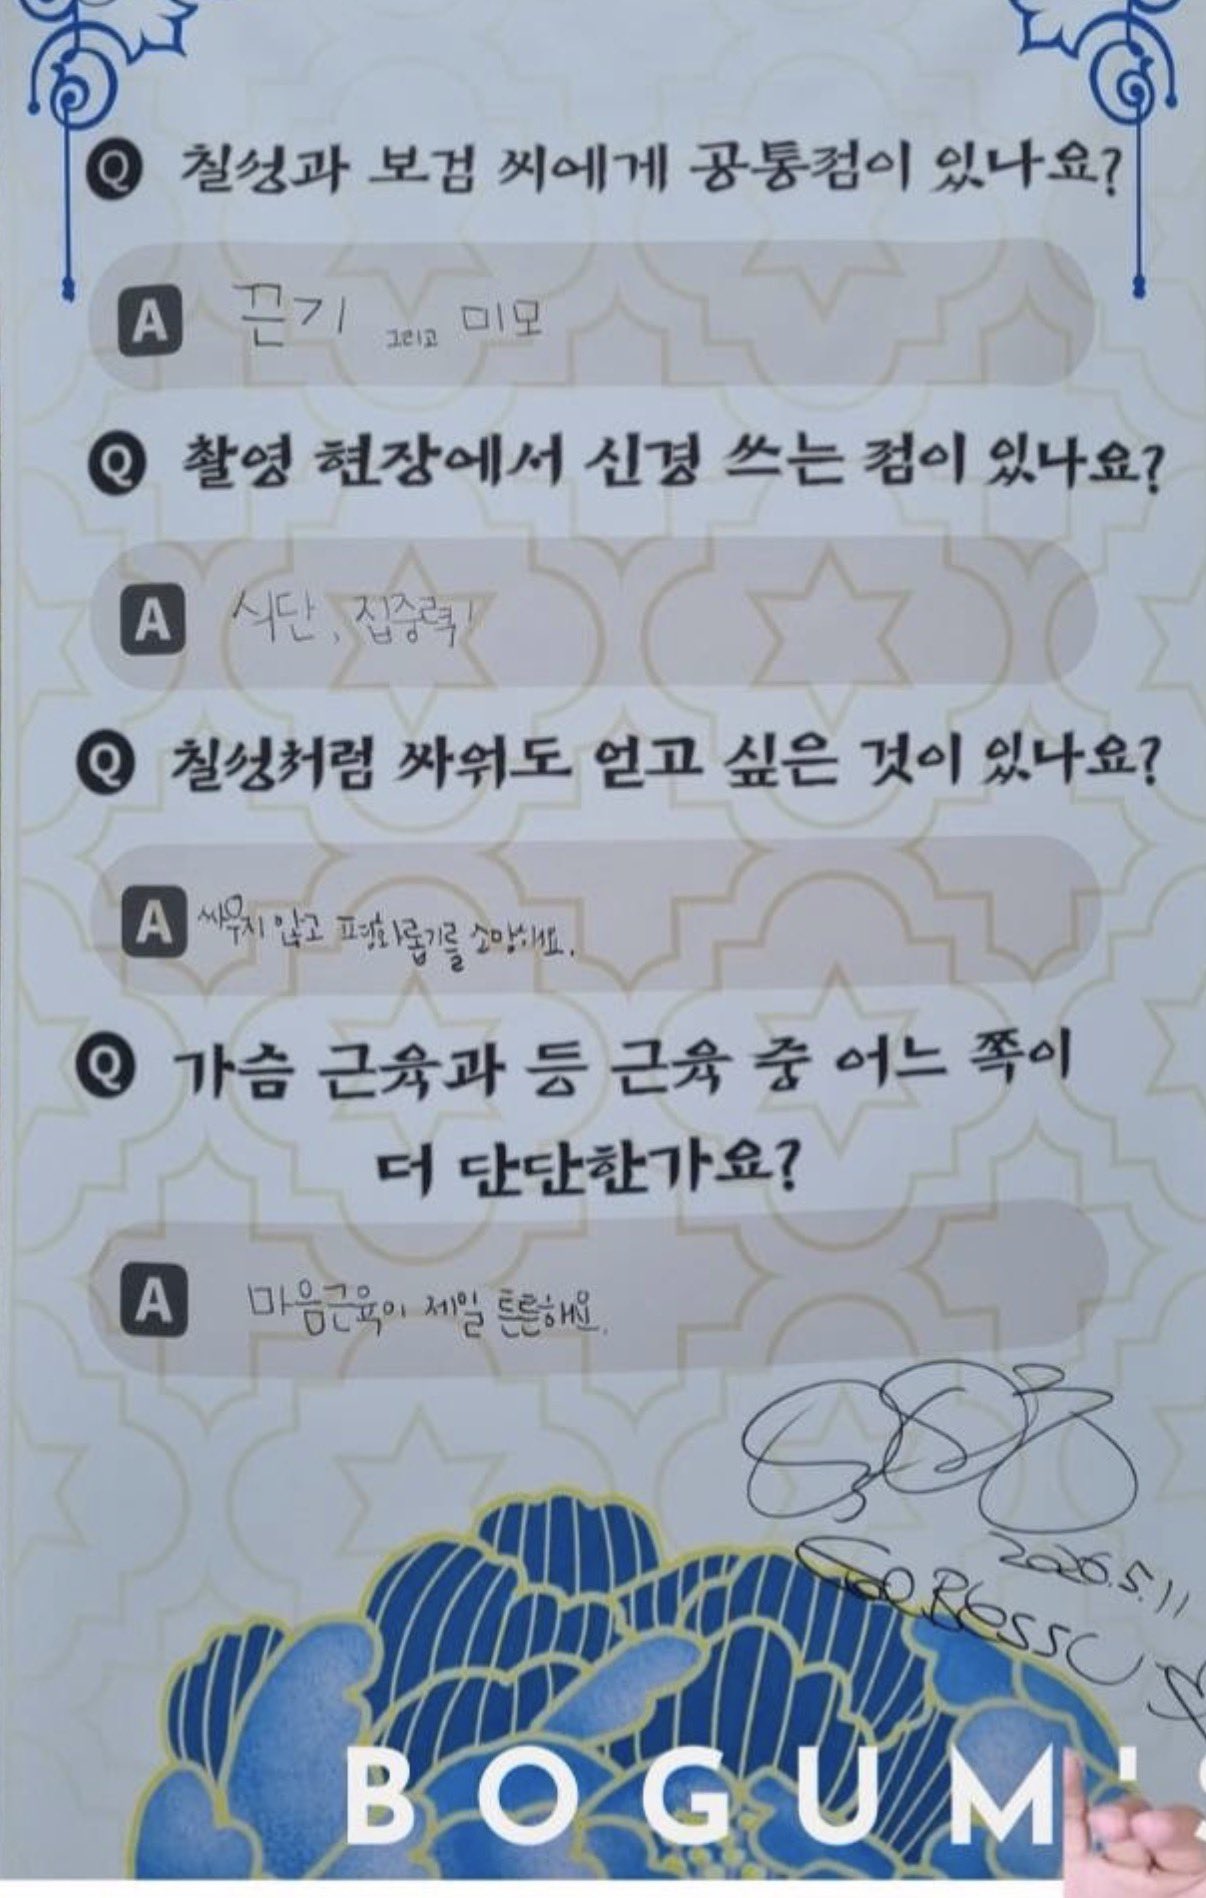 Q 칠성과 보검 씨에게 공통점이 있나요?
A 끈기 그리고 미모
Q 촬영 현장에서 신경 쓰는 점이 있나요?
A 식단, 집중력!
Q 칠성처럼 싸워도 얻고 싶은 것이 있나요?
A 싸우지 않고 평화롭기를 소망해요.
Q 가슴 근육과 등 근육 중 어느 쪽이
더 단단한가요?
A 마음근육이 제일 튼튼해요.
2026.5.11
BOGUM'S